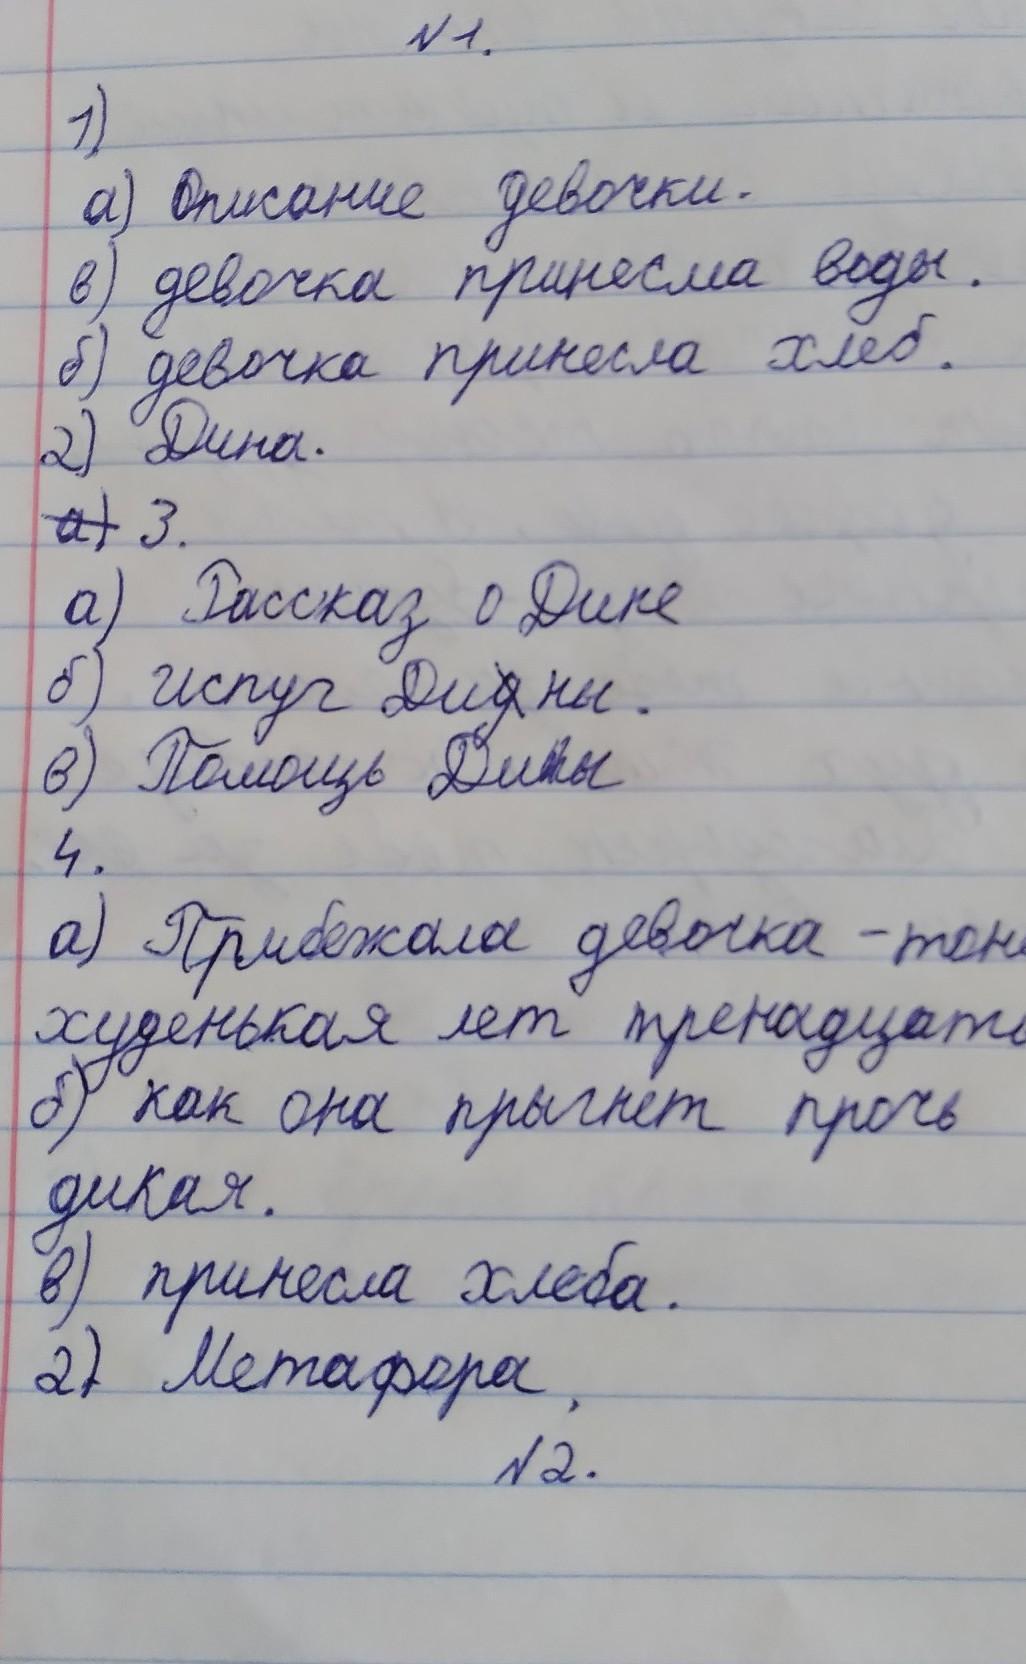 №1.
1)
а) Описание девочки.
в) девочка принесма воды.
б) девочка принесла хлеб.
2) Дина.
а) 3.
а) Рассказ о Дине
б) испуг Дины.
в) Помощь Дины
4.
а) Прибежала девочка - тон
худенькая лет тренадцат
б) как она прыгнет прочь
дикая.
в) принесла хлеба.
2) Метафора.
№2.